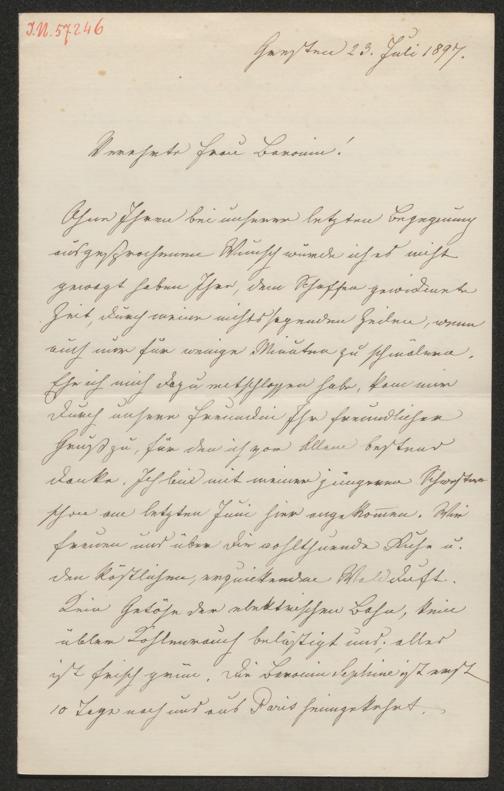 I.N. 57246
Gresten 23. Juli 1897.
Verehrte Frau Baronin!
Ohne Ihren bei unserer letzten Begegnung
ausgesprochenen Wunsch würde ich es nicht
gewagt haben Ihre, dem Schaffen gewidmete
Zeit, durch meine nichtssagenden Zeilen, wenn
auch nur für wenige Minuten zu schmälern.
Ehe ich mich dazu entschlossen habe, kam mir
durch unsere Freundin Ihr freundlicher
Gruß zu, für den ich vor Allem bestens
danke. Ich bin mit meiner jüngeren Schwester
schon am letzten Juni hier angekommen. Wir
freuen uns über die wohlthuende Ruhe u.
den köstlichen, erquickenden Waldduft.
Kein Getöse der elektrischen Bahn, kein
übler Kohlenrauch belästigt uns; alles
ist frisch grün. Die Baronin Sephine ist erst
10 Tage nach uns aus Paris heimgekehrt.